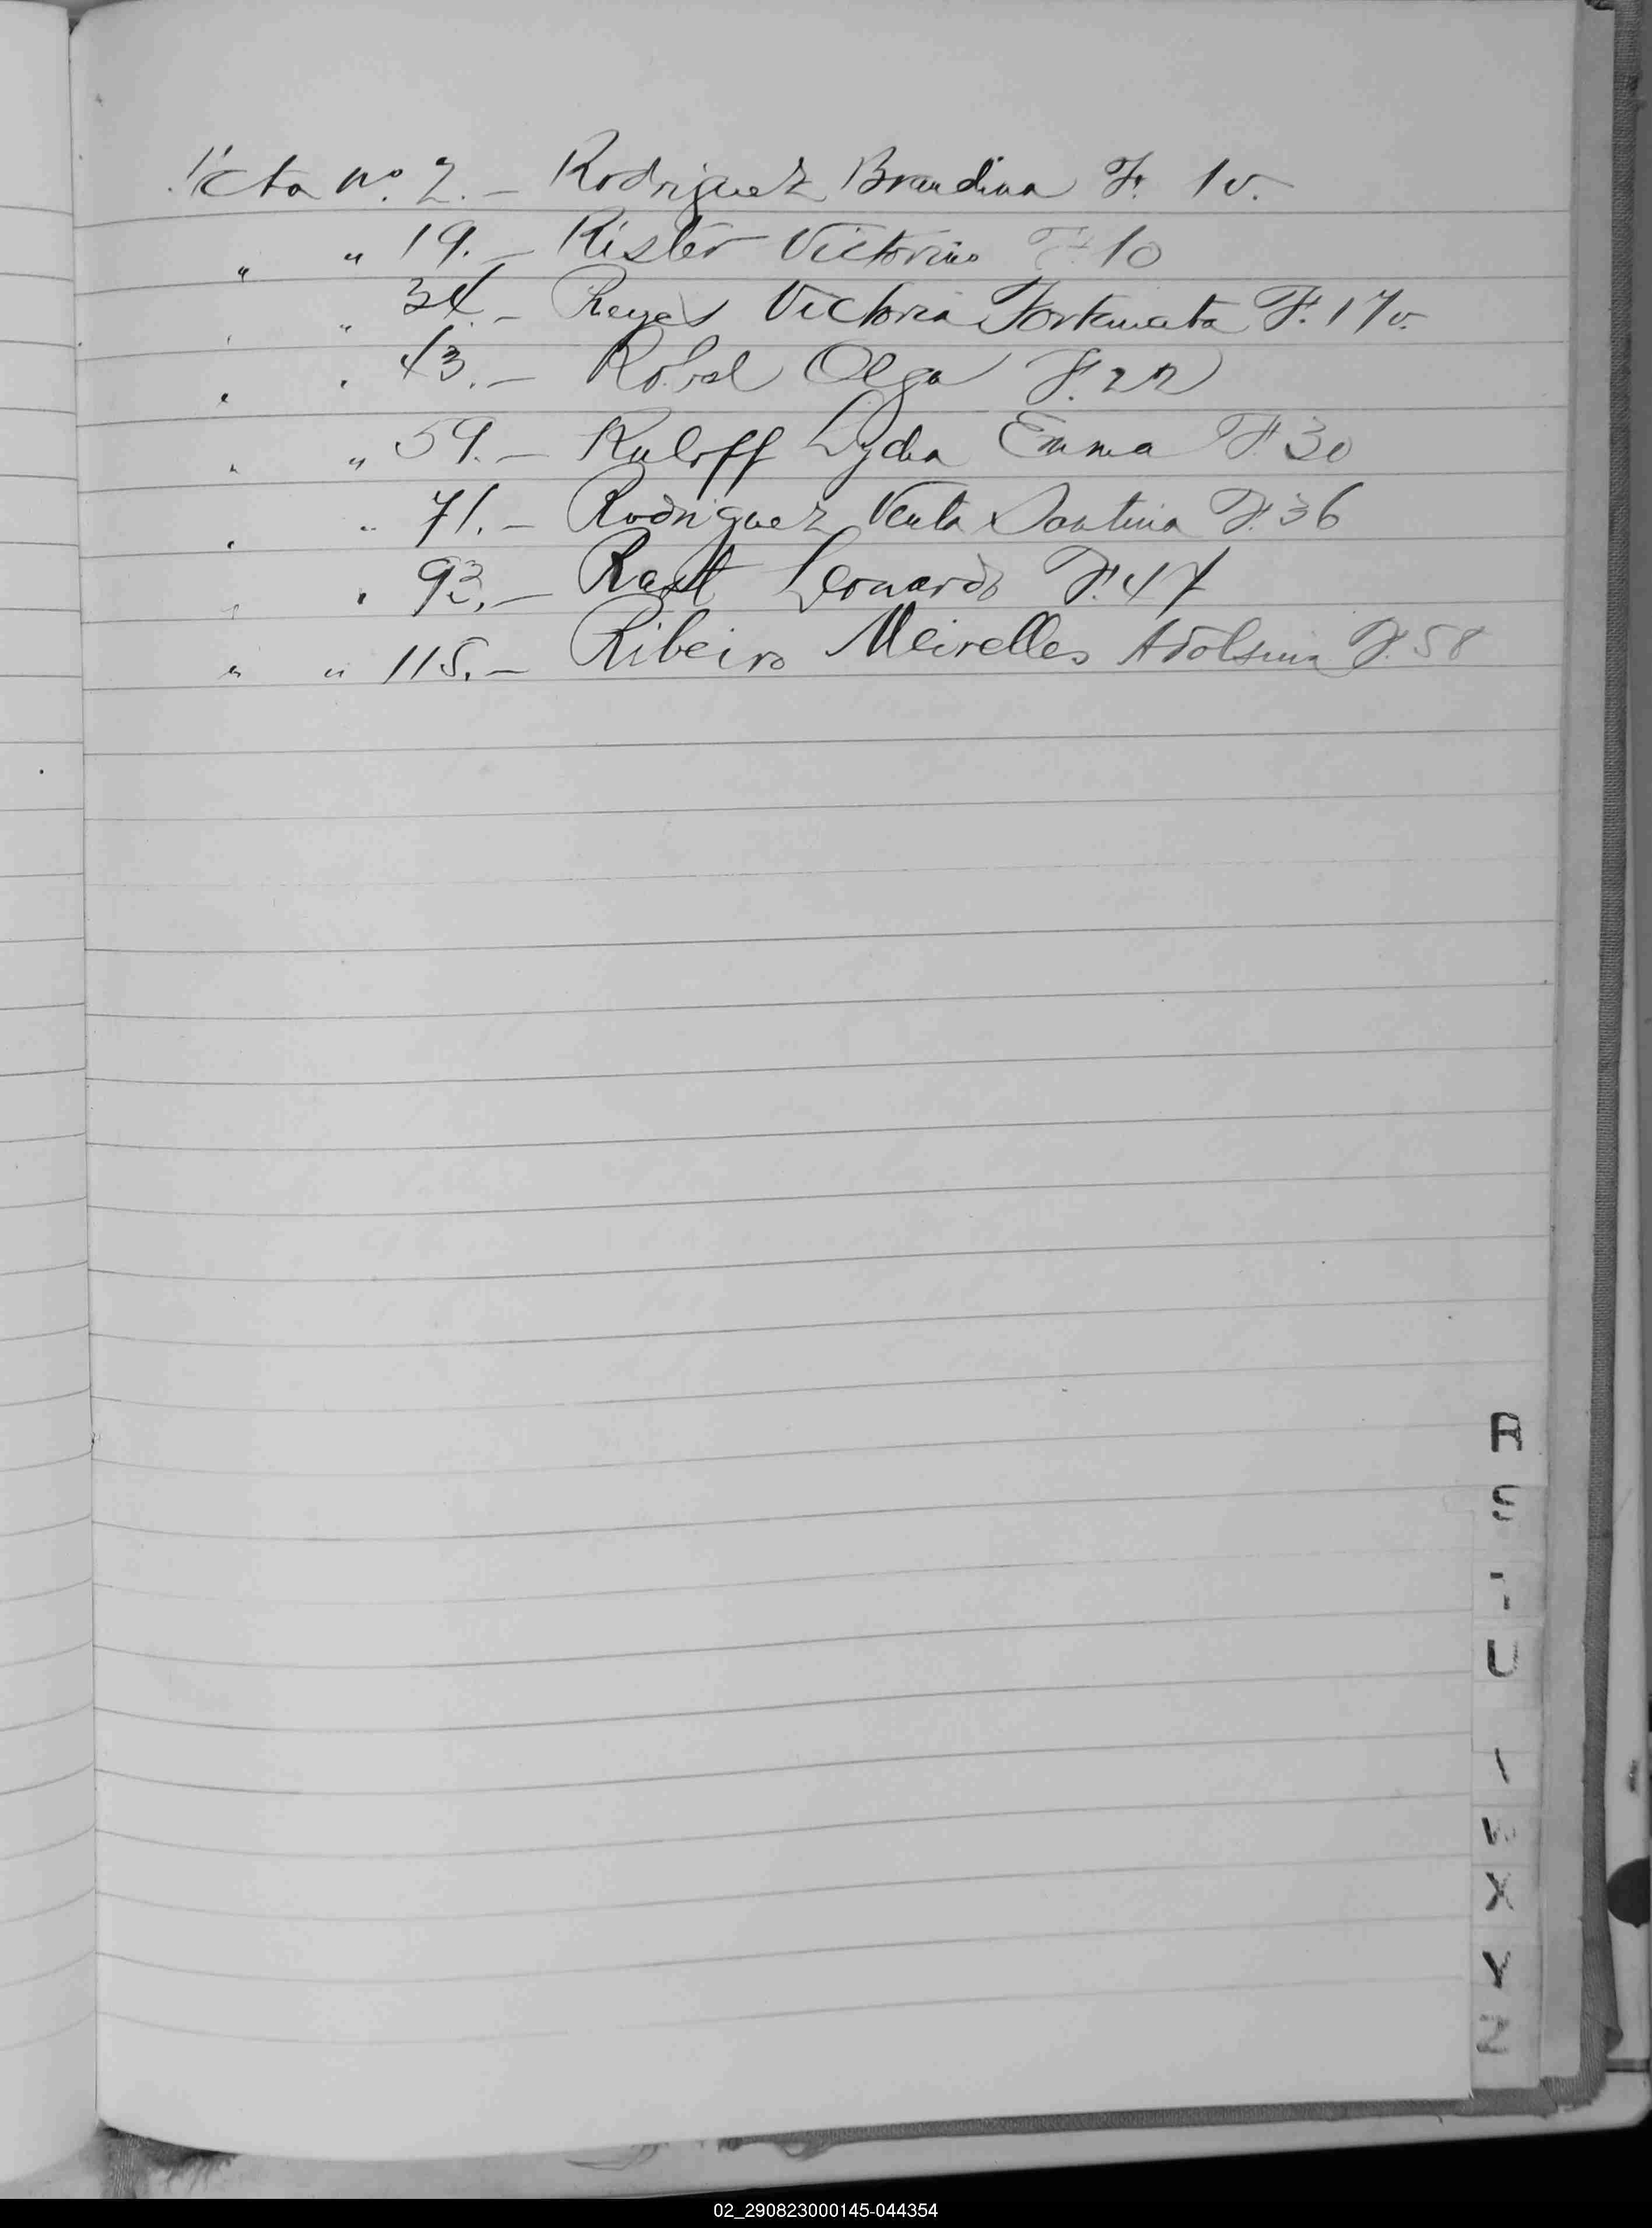 Acta nº. 2. - Rodriguez Brandina F. 1v.
" " 19. - Rister Victorino F. 10
" " 34. - Reyes Victoria Fortunata F. 17v.
" " 43. - Olga F. 22
" " 59. - Ruloff Lydia Emma F. 30
" " 71. - Rodriguez Venta Santina F. 36
" " 93. - Rast Leonardo F. 47
" " 115. - Ribeiro Meirelles F. 58
R
S
T
U
X
Y
Z
02_290823000145-044354